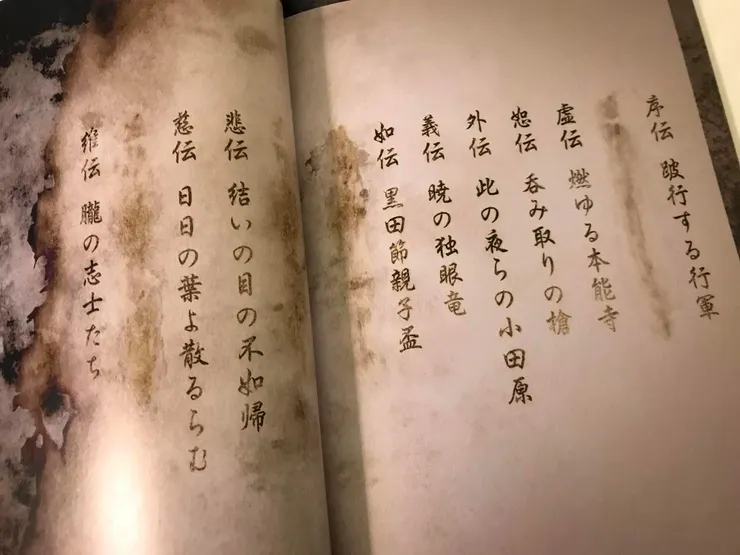 序伝 跛行する行軍
虚伝 燃ゆる本能寺
恕伝 呑み取りの槍
外伝 此の夜らの小田原
義伝 暁の独眼竜
如伝 黒田節親子盃
悲伝 結いの目の不如帰
慈伝 日日の葉よ散るらむ
維伝 朧の志士たち